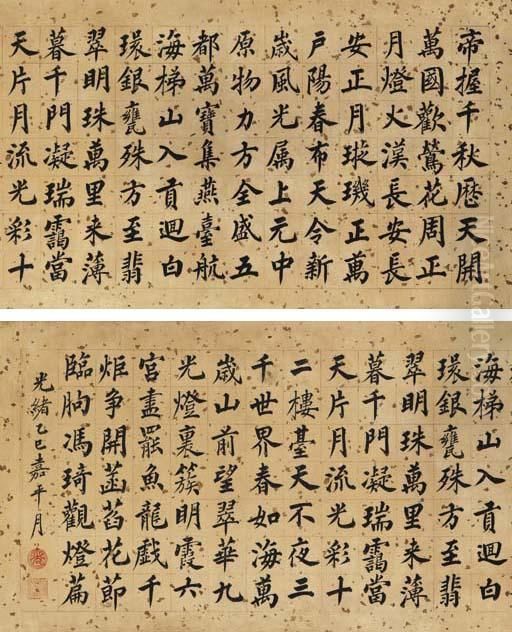 帝握千秋歷天開
萬國歡鶯花周正
月燈火漢長安長
安正月璇璣正萬
戶陽春布天令新
歲風光属上元中
原物力方全盛五
都萬寶集燕臺航
海梯山入貢迴白
環銀甕殊方至翡
翠明珠萬里来薄
暮千門凝瑞靄當
天片月流光彩十
海梯山入貢迴白
環銀甕殊方至翡
翠明珠萬里来薄
暮千門凝瑞靄當
天片月流光彩十
二樓臺天不夜三
千世界春如海萬
歲山前望翠華九
光燈裏簇明霞六
宮盡罷魚龍戲千
炬爭開菡萏花節
臨朐馮琦觀燈篇
光緒乙巳嘉平月